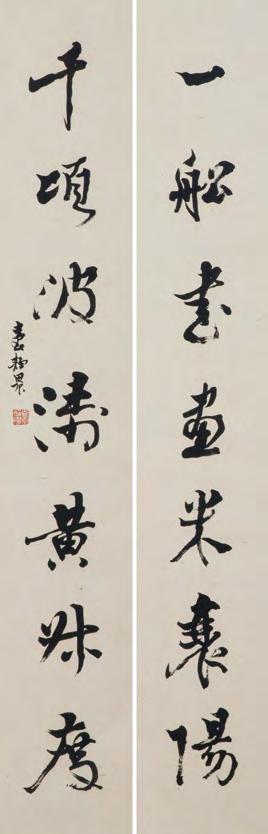 一船書畫米襄陽
千頃波濤黃叔度